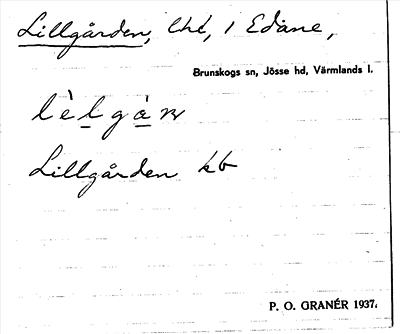 Lillgården, lht, 1 Edane,
Brunskogs sn, Jösse hd, Värmlands l.
Lillgården kb
P. O. GRANÉR 1937.